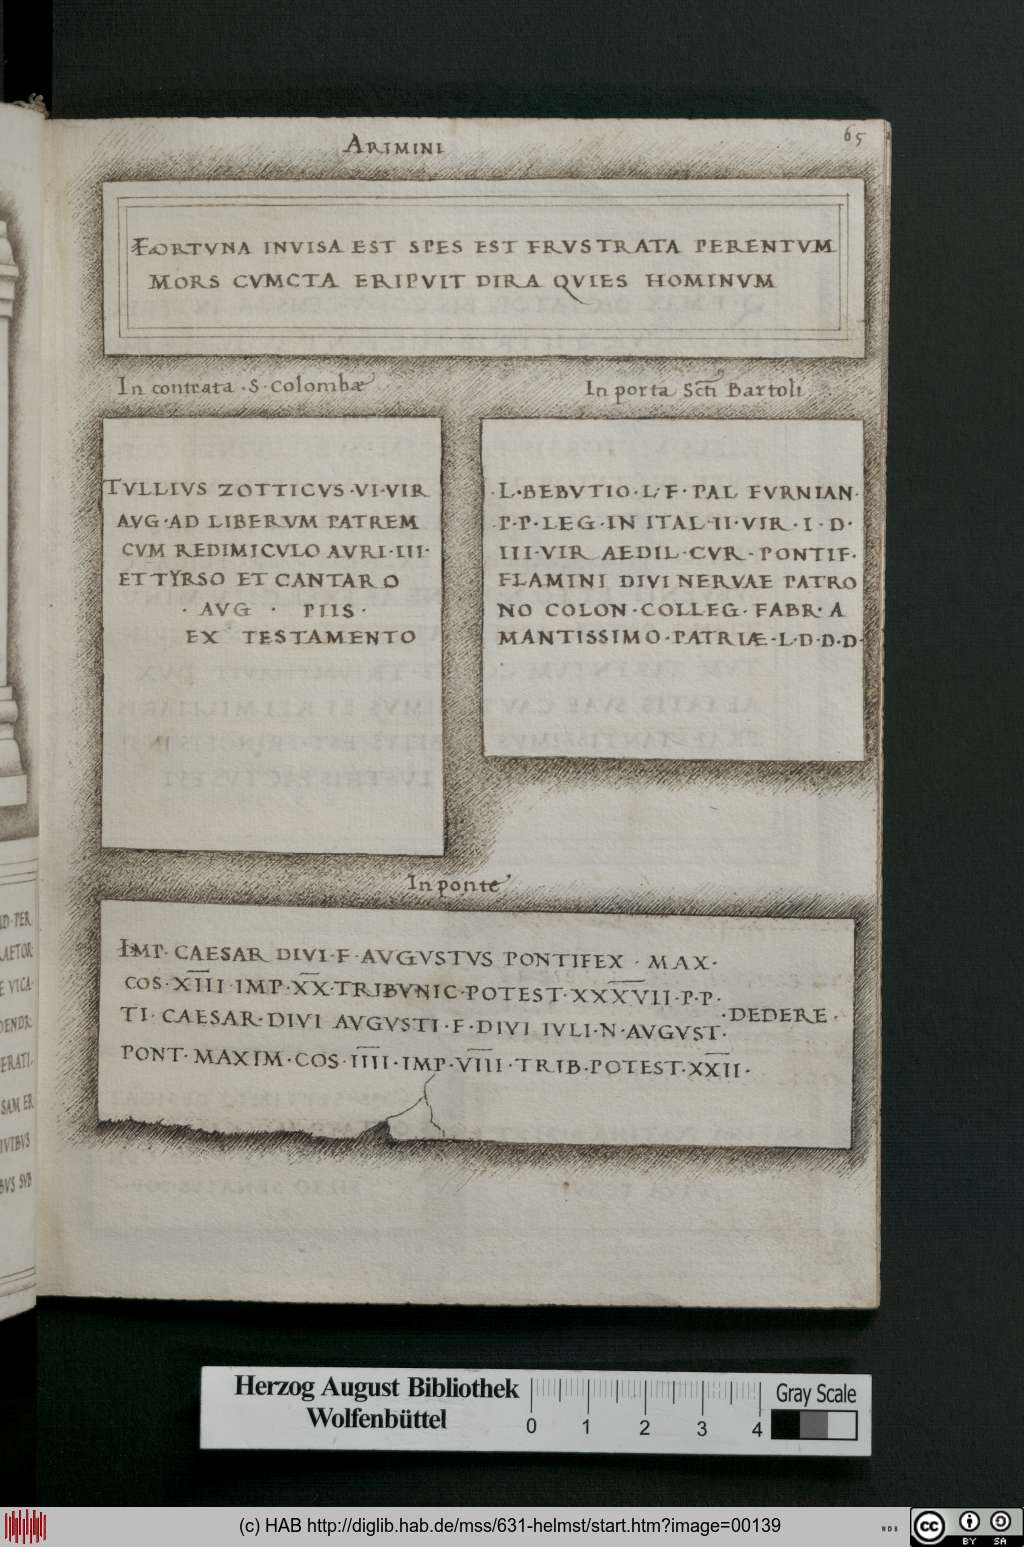 65
ARIMINI
FORTVNA INVISA EST SPES EST FRVSTRATA PERENTVM
MORS CVMCTA ERIPVIT DIRA QVIES HOMINVM
In contrata · S · Colombæ
TVLLIVS ZOTTICVS · VI · VIR
AVG · AD LIBERVM PATREM
CVM REDIMICVLO AVRI · III ·
ET TYRSO ET CANTARO
· AVG · PIIS ·
EX TESTAMENTO
In porta Scti Bartoli
· L · BEBVTIO · L · F · PAL FVRNIAN ·
· P · P · LEG · IN ITAL · II · VIR · I · D ·
III · VIR AEDIL · CVR · PONTIF ·
FLAMINI DIVI NERVAE PATRO
NO COLON · COLLEG · FABR · A
MANTISSIMO · PATRIÆ · L · D · D · D ·
In ponte
IMP · CAESAR DIVI · F · AVGVSTVS PONTIFEX · MAX ·
COS · XIII · IMP · XX · TRIBVNIC · POTEST · XXXVII · P · P ·
TI · CAESAR · DIVI AVGVSTI · F · DIVI IVLI · N · AVGVST ·
· DEDERE ·
PONT · MAXIM · COS · IIII · IMP · VIII · TRIB · POTEST · XXII ·
Herzog August Bibliothek
Wolfenbüttel
0 1 2 3 4
Gray Scale
(c) HAB http://diglib.hab.de/mss/631-helmst/start.htm?image=00139
WDB
cc BY SA